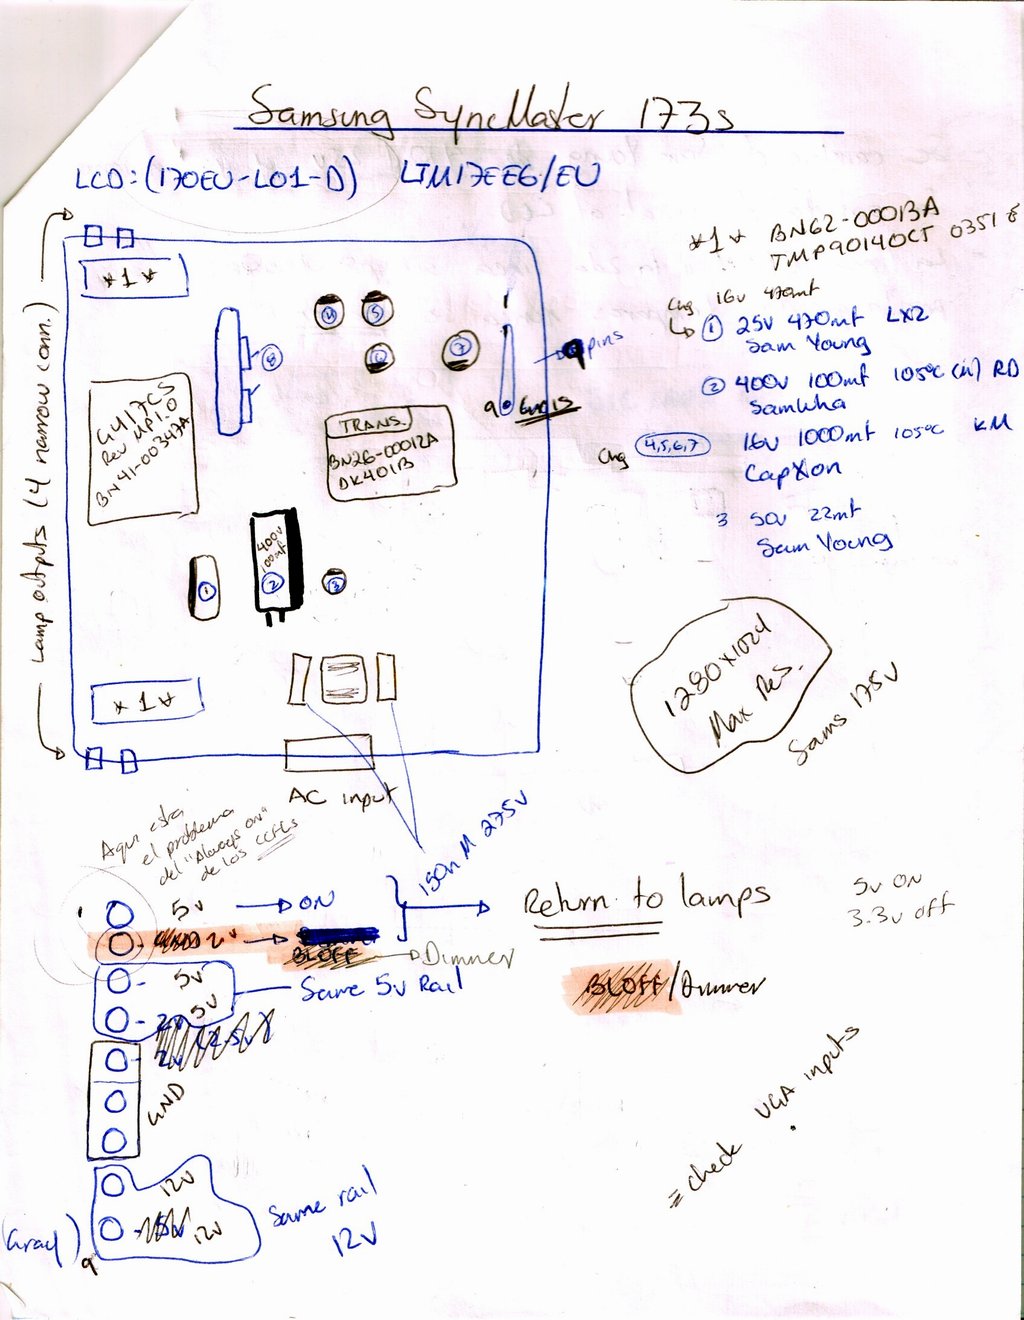 Samsung SyncMaster 173s
LCD: (170EU-L01-D) LTM17EE6/EU
*1* BN62-00013A
TMP90140CT 0351 8
Chg 16v 470mf
1 25v 470mf LXZ
Sam Young
2 400v 100mf 105°C (M) RD
SamWha
Chg 4,5,6,7 16v 1000mf 105°C KM
CapXon
3 50v 22mf
Sam Young
Lamp outputs (4 narrow conn.)
*1*
4 5
8 6 7
9 pins
9 End is
G417CS
Rev MP1.0
BN41-00347A
TRANS.
BN26-00012A
DK401B
400v
100mf
1 2 3
*1*
AC input
150n M 275v
1280x1024
Max Res.
Sams 175v
Aqui esta
el problema
del "Always on"
de los CCFLs
1 5v → ON
BLOFF → Dimmer
Return to lamps
5v ON
3.3v off
BLOFF/Dimmer
5v
5v
Same 5v Rail
2v
GND
12v
5v 12v
Same rail
12v
(Gray) 9
= check VGA inputs